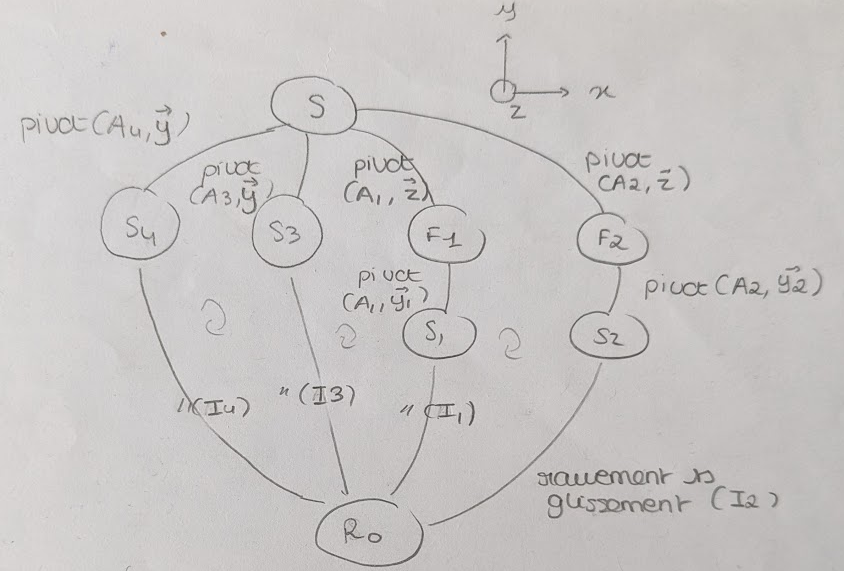 y
x
z
S
pivot (A4, y⃗)
pivot
(A3, y⃗)
pivot
(A1, z⃗)
pivot
(A2, z⃗)
S4
S3
F1
F2
pivot
(A1, y⃗1)
pivot (A2, y⃗2)
S1
S2
"(I4)
"(I3)
"(I1)
roulement ss
glissement (I2)
R0